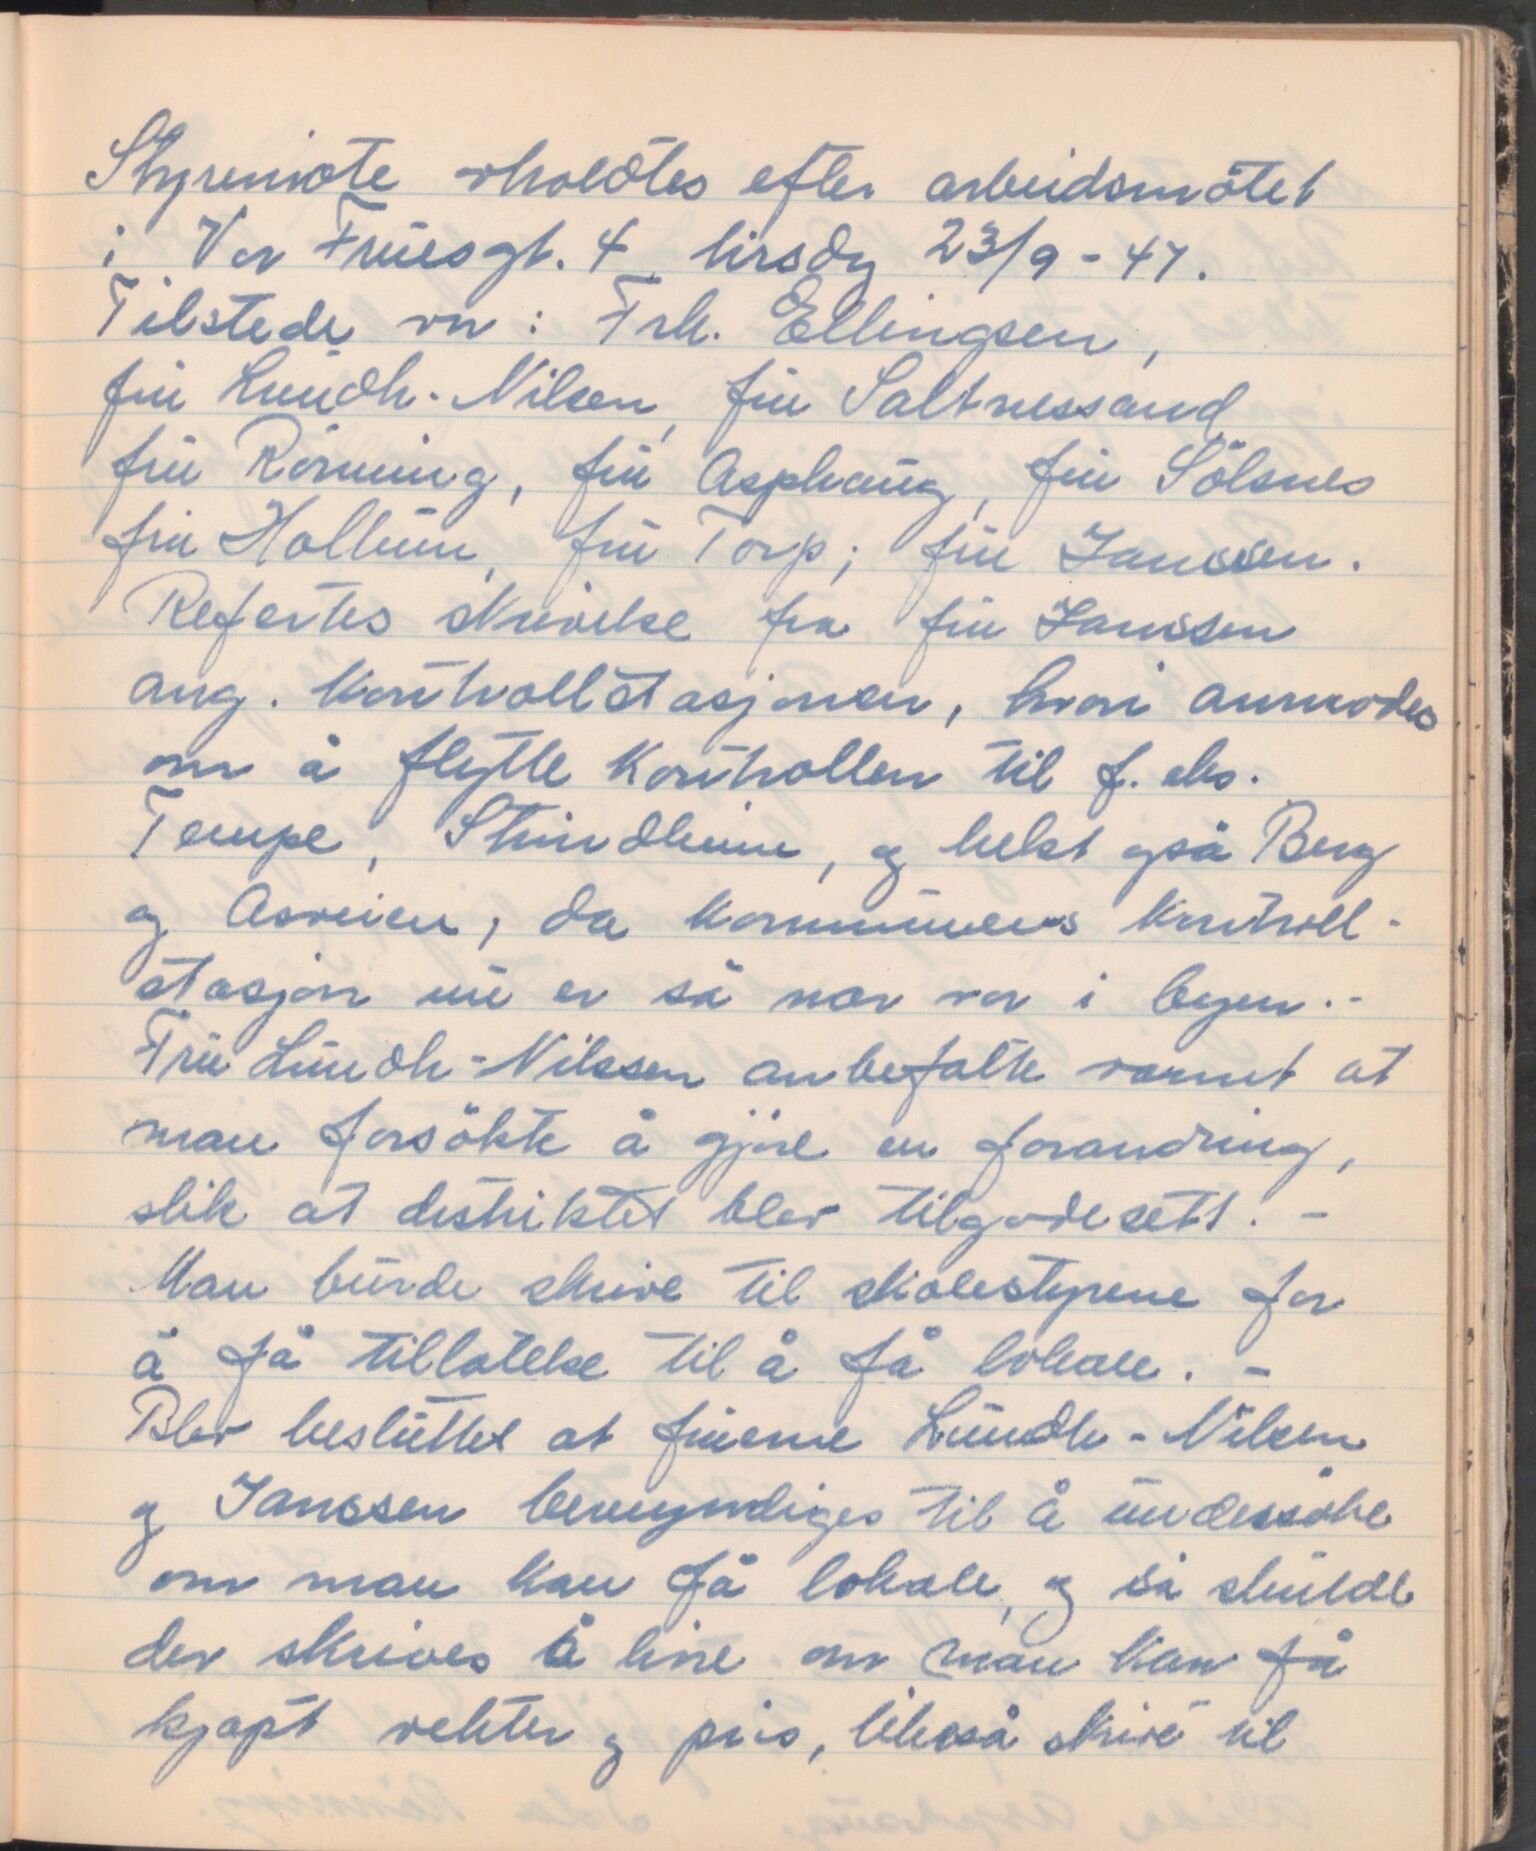 Styremöte avholdtes efter arbeidsmötet
i Vor Fruesgt. 4 tirsdg 23/9-47.
Tilstede var: Frk. Ellingsen,
fru Lundh-Nilsen, fru Saltnessand
fru Rönning, fru Asphaug, fru Sölsnes
fru Hollum, fru Torp; fru Janssen.
Refertes skrivelse fra fru Janssen
ang. Kontrollstasjonen, hvori anmodes
om å flytte Kontrollen til f. eks.
Tempe, Strindheim, og helst også Berg
og Asveien, da Kommunens Kontroll-
stasjon nu er så nær vor i byen.-
Fru Lundh-Nilssen anbefalte varmt at
man forsökte å gjöre en forandring,
slik at distriktet blev tilgodesett. -
Man burde skrive til skolestyrene for
å få tillatelse til å få lokale. -
Blev besluttet at fruene Lundh-Nilsen
og Janssen bemyndiges til å undersöke
om man kan få lokale, og så skulde
der skrives å höre om man kan få
kjøpt vekter og pris, likeså skrive til